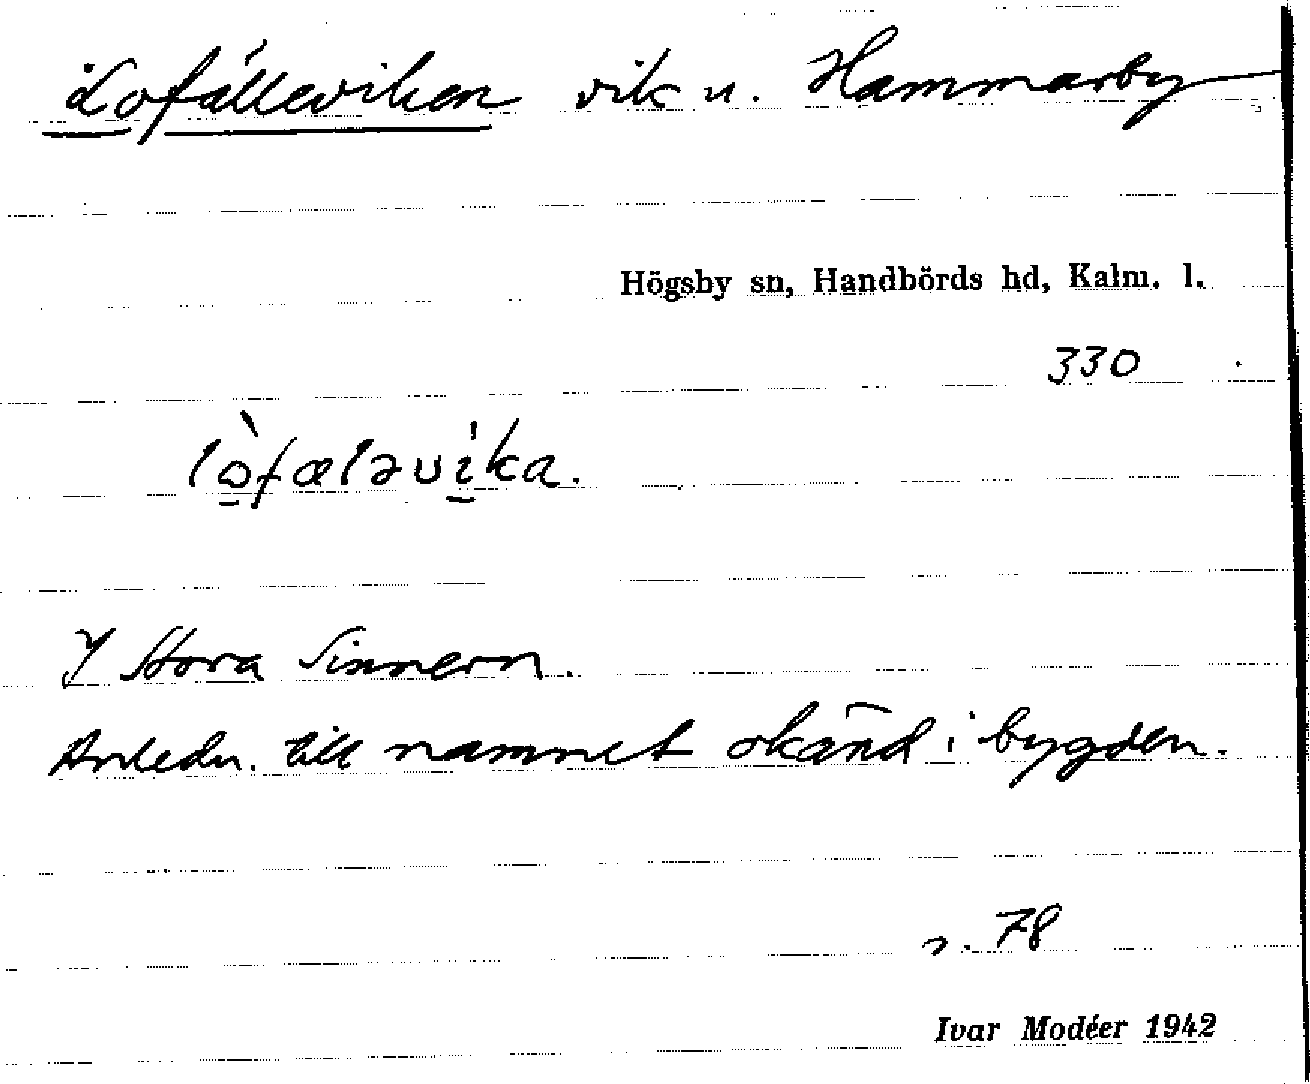 Lofälleviken vik u. Hammarby
Högsby sn, Handbörds hd, Kalm. l.
330
lò̱fæləvi̱̍ka.
I Stora Sinnern.
Anledn. till namnet okänd i bygden.
s. 78
Ivar Modéer 1942